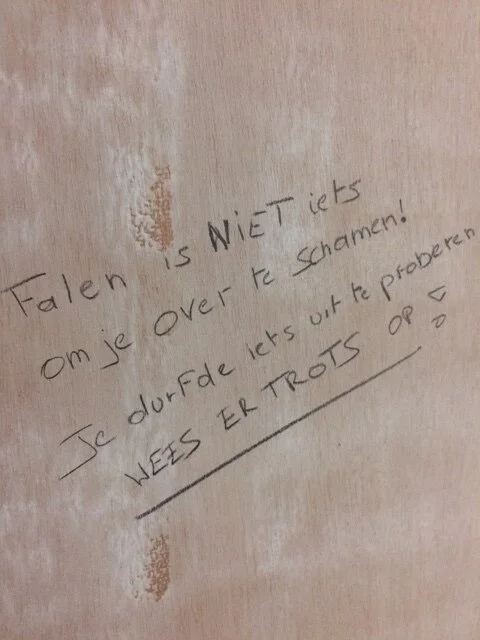 Falen is NiET iets
om je over te schamen!
Je durfde iets uit te proberen
WEES ER TROTS OP!